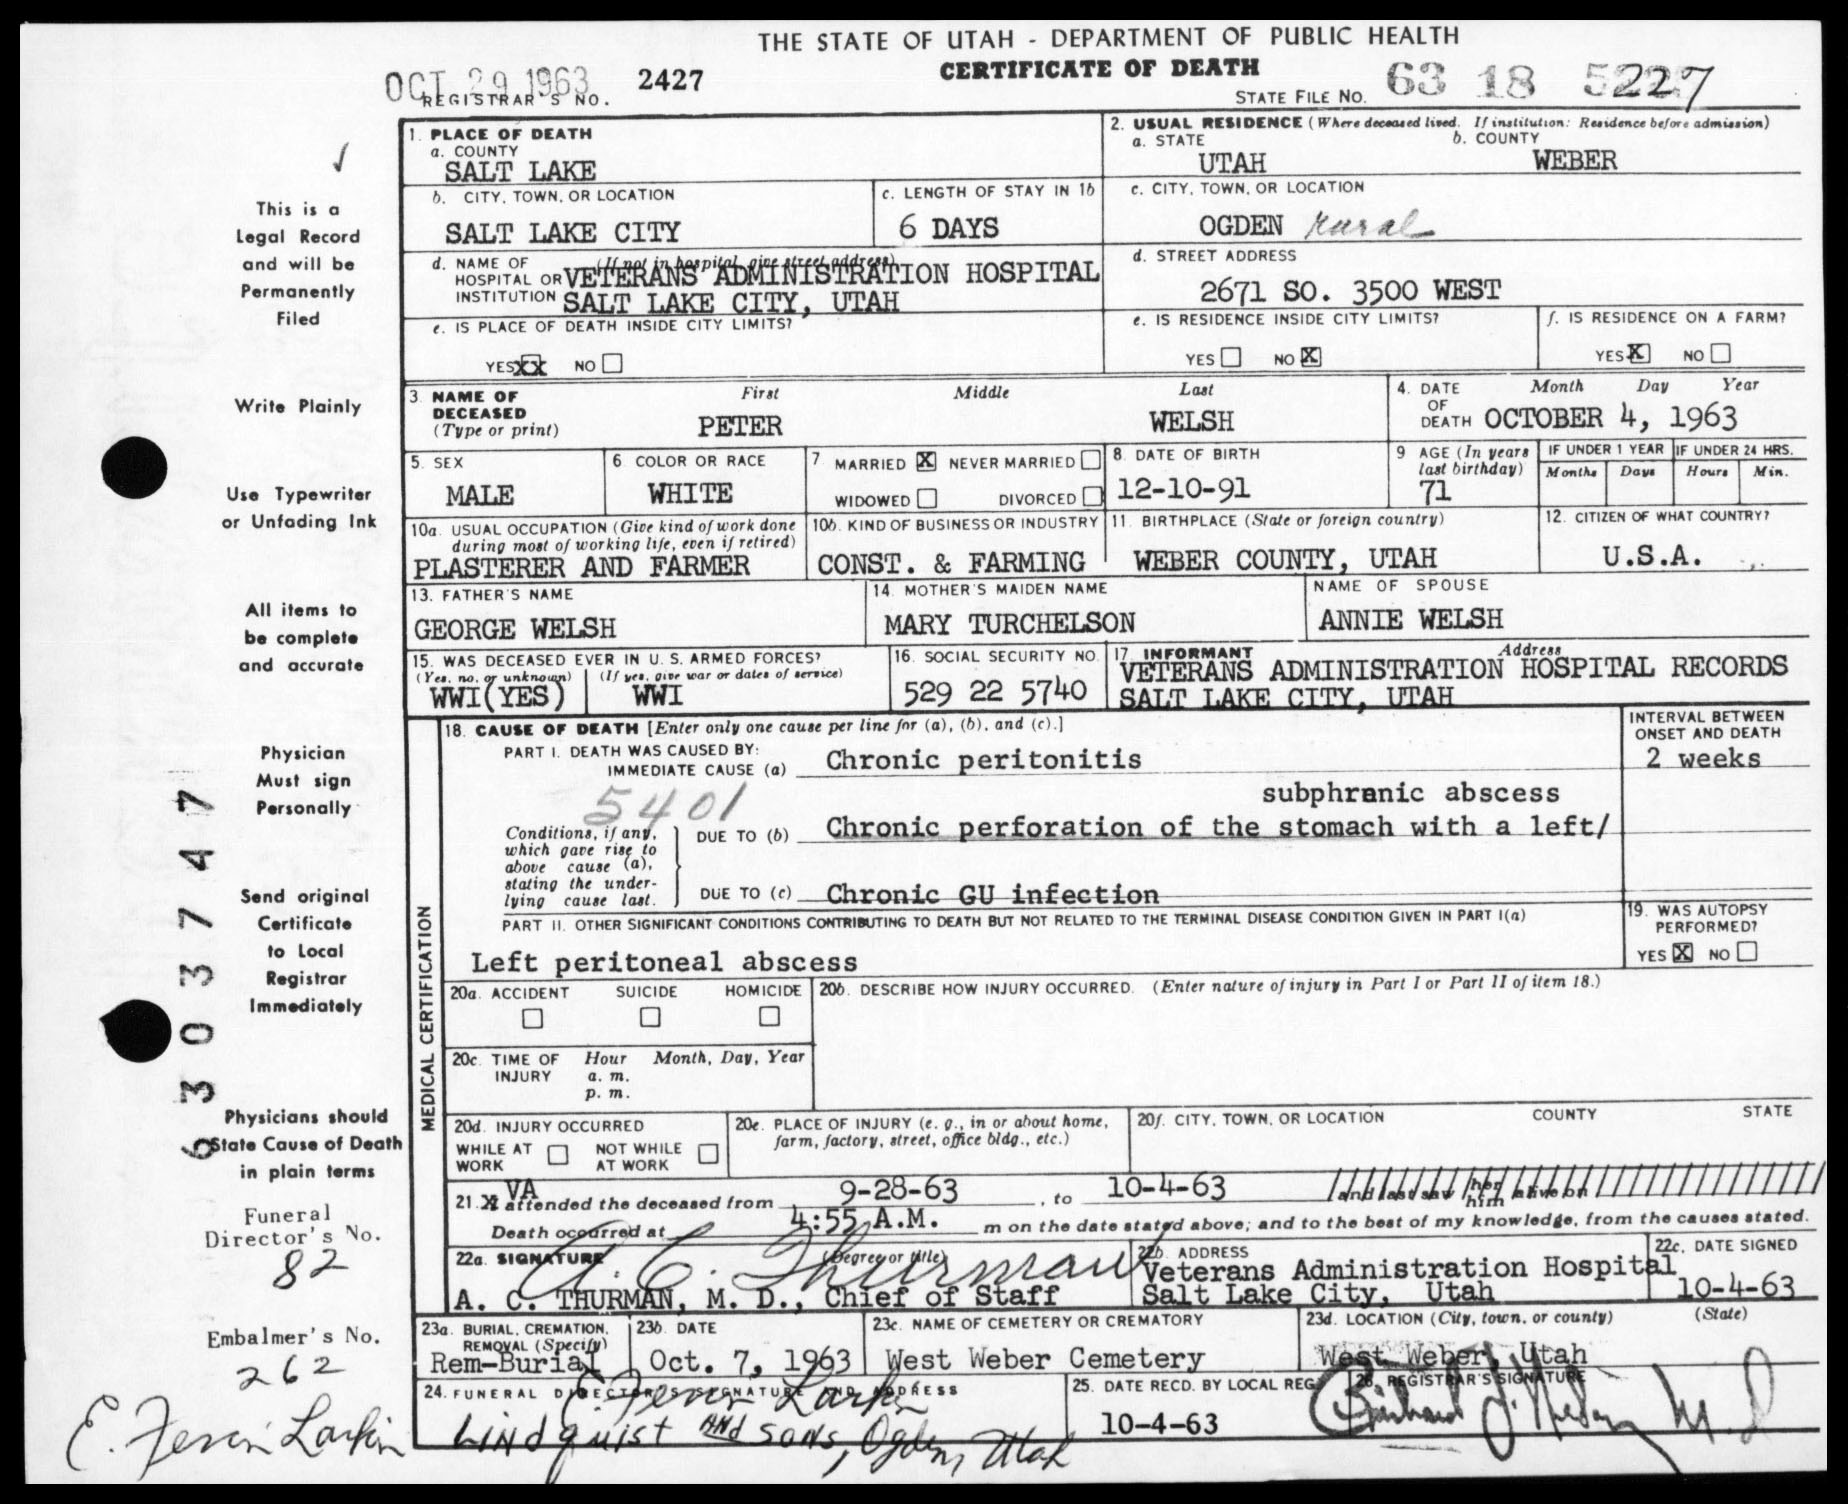 THE STATE OF UTAH - DEPARTMENT OF PUBLIC HEALTH
CERTIFICATE OF DEATH
OCT 29 1963
REGISTRAR'S NO. 2427
STATE FILE NO. 63 18 5227
This is a
Legal Record
and will be
Permanently
Filed
Write Plainly
Use Typewriter
or Unfading Ink
All items to
be complete
and accurate
Physician
Must sign
Personally
Send original
Certificate
to Local
Registrar
Immediately
Physicians should
State Cause of Death
in plain terms
Funeral
Director's No.
82
Embalmer's No.
262
E. Ferrin Larkin
6303747
1. PLACE OF DEATH
a. COUNTY
SALT LAKE
b. CITY, TOWN, OR LOCATION
SALT LAKE CITY
c. LENGTH OF STAY IN 1b
6 DAYS
d. NAME OF HOSPITAL OR INSTITUTION (If not in hospital, give street address)
VETERANS ADMINISTRATION HOSPITAL
SALT LAKE CITY, UTAH
e. IS PLACE OF DEATH INSIDE CITY LIMITS?
YES XX NO
2. USUAL RESIDENCE (Where deceased lived. If institution: Residence before admission)
a. STATE
UTAH
b. COUNTY
WEBER
c. CITY, TOWN, OR LOCATION
OGDEN rural
d. STREET ADDRESS
2671 SO. 3500 WEST
e. IS RESIDENCE INSIDE CITY LIMITS?
YES NO X
f. IS RESIDENCE ON A FARM?
YES X NO
3. NAME OF DECEASED (Type or print)
First Middle Last
PETER WELSH
4. DATE OF DEATH Month Day Year
OCTOBER 4, 1963
5. SEX
MALE
6. COLOR OR RACE
WHITE
7. MARRIED X NEVER MARRIED
WIDOWED DIVORCED
8. DATE OF BIRTH
12-10-91
9. AGE (In years last birthday)
71
IF UNDER 1 YEAR
Months Days
IF UNDER 24 HRS.
Hours Min.
10a. USUAL OCCUPATION (Give kind of work done during most of working life, even if retired)
PLASTERER AND FARMER
10b. KIND OF BUSINESS OR INDUSTRY
CONST. & FARMING
11. BIRTHPLACE (State or foreign country)
WEBER COUNTY, UTAH
12. CITIZEN OF WHAT COUNTRY?
U.S.A.
13. FATHER'S NAME
GEORGE WELSH
14. MOTHER'S MAIDEN NAME
MARY TURCHELSON
NAME OF SPOUSE
ANNIE WELSH
15. WAS DECEASED EVER IN U. S. ARMED FORCES?
(Yes, no, or unknown) (If yes, give war or dates of service)
WWI(YES) WWI
16. SOCIAL SECURITY NO.
529 22 5740
17. INFORMANT Address
VETERANS ADMINISTRATION HOSPITAL RECORDS
SALT LAKE CITY, UTAH
MEDICAL CERTIFICATION
18. CAUSE OF DEATH [Enter only one cause per line for (a), (b), and (c).]
PART I. DEATH WAS CAUSED BY:
IMMEDIATE CAUSE (a) Chronic peritonitis
INTERVAL BETWEEN ONSET AND DEATH
2 weeks
5401
subphrenic abscess
Conditions, if any, which gave rise to above cause (a), stating the underlying cause last.
DUE TO (b) Chronic perforation of the stomach with a left/
DUE TO (c) Chronic GU infection
PART II. OTHER SIGNIFICANT CONDITIONS CONTRIBUTING TO DEATH BUT NOT RELATED TO THE TERMINAL DISEASE CONDITION GIVEN IN PART I(a)
Left peritoneal abscess
19. WAS AUTOPSY PERFORMED?
YES X NO
20a. ACCIDENT SUICIDE HOMICIDE
20b. DESCRIBE HOW INJURY OCCURRED. (Enter nature of injury in Part I or Part II of item 18.)
20c. TIME OF INJURY Hour Month, Day, Year
a. m.
p. m.
20d. INJURY OCCURRED
WHILE AT WORK NOT WHILE AT WORK
20e. PLACE OF INJURY (e. g., in or about home, farm, factory, street, office bldg., etc.)
20f. CITY, TOWN, OR LOCATION COUNTY STATE
21. VA attended the deceased from 9-28-63, to 10-4-63 and last saw her him alive on
Death occurred at 4:55 A.M. m on the date stated above; and to the best of my knowledge, from the causes stated.
22a. SIGNATURE (Degree or title)
A. C. Thurman
A. C. THURMAN, M. D., Chief of Staff
22b. ADDRESS
Veterans Administration Hospital
Salt Lake City, Utah
22c. DATE SIGNED
10-4-63
23a. BURIAL, CREMATION, REMOVAL (Specify)
Rem-Burial
23b. DATE
Oct. 7, 1963
23c. NAME OF CEMETERY OR CREMATORY
West Weber Cemetery
23d. LOCATION (City, town, or county) (State)
West Weber, Utah
24. FUNERAL DIRECTOR'S SIGNATURE AND ADDRESS
E. Ferrin Larkin
Lindquist AND SONS, Ogden, Utah
25. DATE RECD. BY LOCAL REG.
10-4-63
26. REGISTRAR'S SIGNATURE
M. D